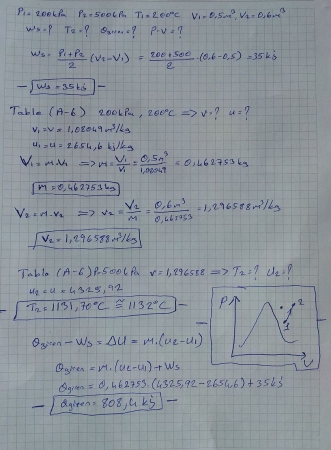 P₁=200kPa P₂=500kPa T₁=200°C V₁=0,5m³, V₂=0,6m³
Ws=? T₂=? Qgiren=? P-V=?
Ws = P₁+P₂/2 (V₂-V₁) = 200+500/2 (0,6-0,5)=35kj
Ws=35kj
Table (A-6) 200kPa, 200°C => v=? u=?
v₁=v= 1,08049 m³/kg
u₁=u= 2654,6 kj/kg
V₁=m.v₁ => m= V₁/v₁ = 0,5m³/1,08049 = 0,462753kg
m=0,462753kg
V₂=m.v₂ => v₂= V₂/m = 0,6m³/0,462753 = 1,296588m³/kg
v₂=1,296588m³/kg
Table (A-6) P=500kPa v=1,296588 => T₂=? u₂=?
u₂=u=4325,92
T₂=1131,70°C ≅ 1132°C
P 2 1 V
Qgiren - Ws = ΔU = m.(u₂-u₁)
Qgiren = m.(u₂-u₁)+Ws
Qgiren= 0,462753.(4325,92-2654,6)+35kj
Qgiren= 808,4 kj